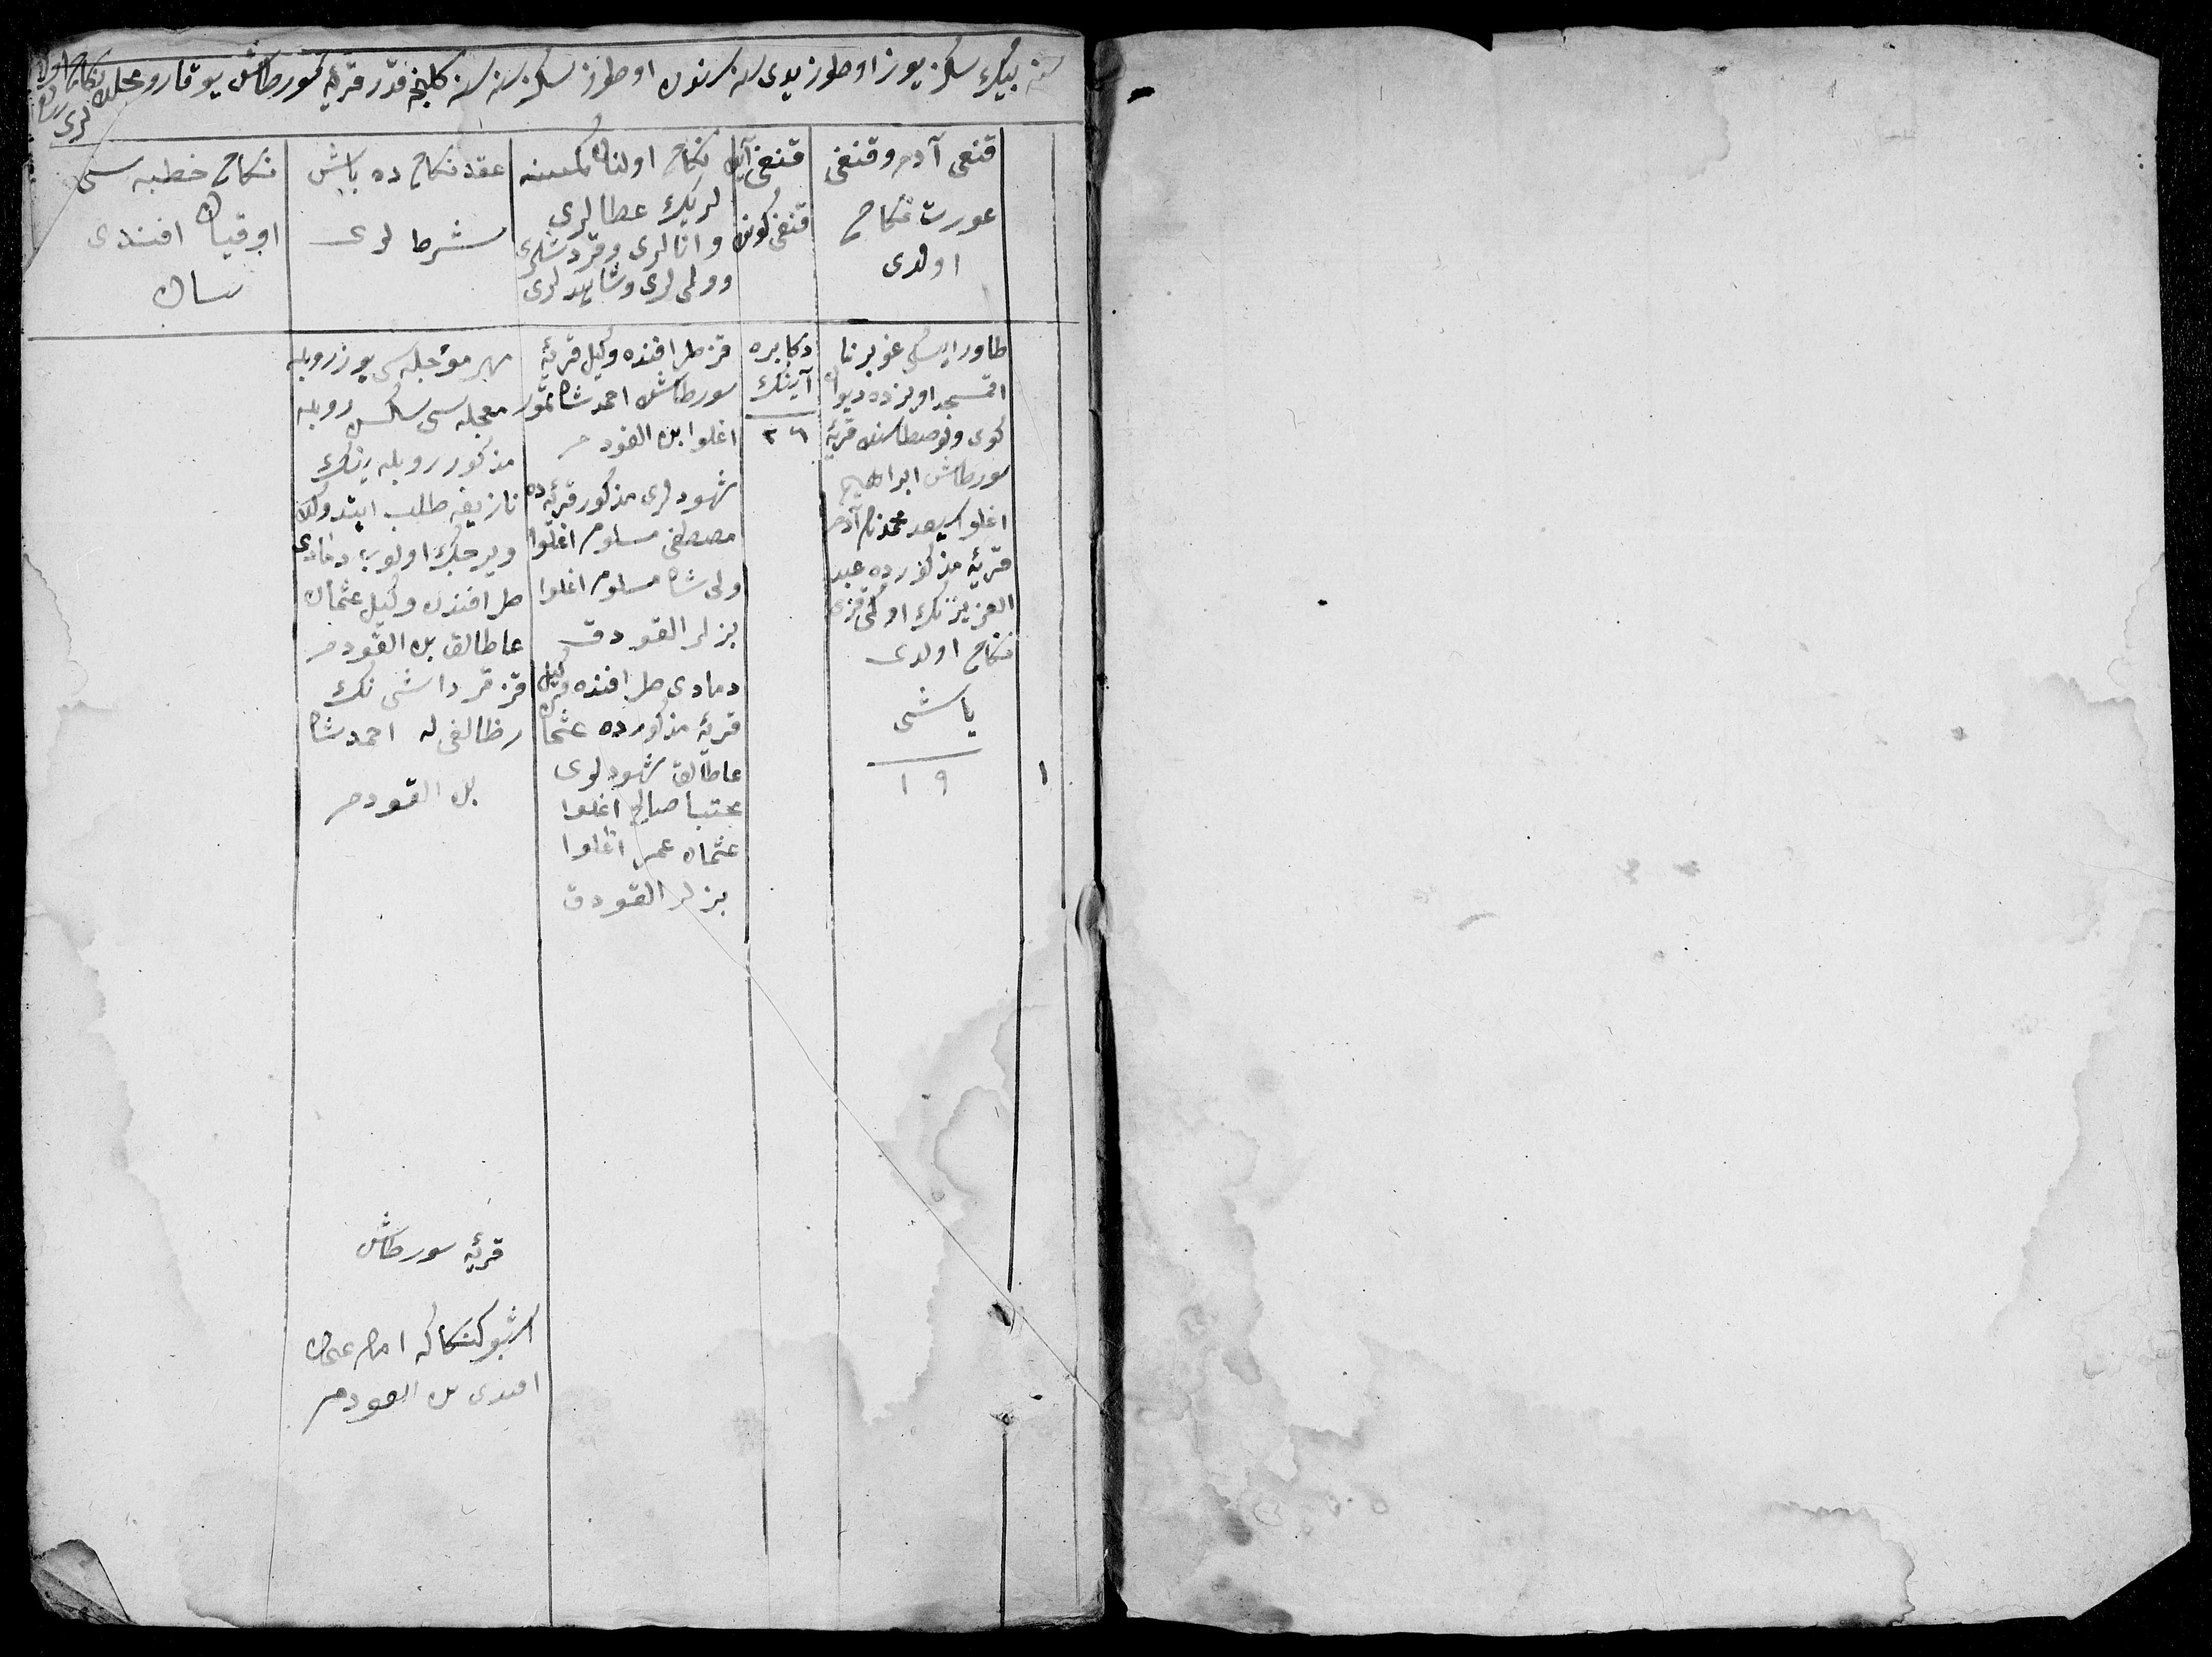 سنه بیڭ سكز یوز اوطوز یدی سنه سندن اوطوز سكز سنه سنه كلنجه قدر قریهٔ سورطاش یوقارو محله نكاح
لری
قنغی آدم و قنغی
عورت نكاح
اولدی
قنغی آیڭ
قنغی كونی
نكاح اولنان كمسنه
لریڭ عطالری
و انالری و قرداشلری
و ولی لری و شاهدلری
عقد نكاح ده باش
شرط لری
نكاح خطبه سی
اوقیان افندی
۱
طاورایسكی غوبرنا
اقمسجد اویزده دیوان
كوی ولوصطاسنده قریهٔ
سورطاش ابراهیم
اغلو سید محمد نام آدم
قریهٔ مذكورده عبد
العزیزنڭ اوكی قزی
نكاح اولدی
یاشی
۱۹
دكابره
آینڭ
۲٦
قز طرافنده وكیل قریهٔ
سورطاش احمدشاه تمور
اغلوا بن القودم
شهودلری مذكور قریهٔ ده
مصطفی مسلوم اغلوا
ولی شاه مسلوم اغلوا
بزلر القودق
دمادی طرافنده وكیل
قریهٔ مذكورده عثمان
عاطالق شهودلری
مجتبا صالح اغلوا
عثمان عمر اغلوا
بزلر القودق
مهر مؤجله سی یوز روبله
معجله سی سكسن روبله
مذكور روبله ینڭ
طلب ایتدوكی
ویرجك اولوب دمادی
طرافندن وكیل عثمان
عاطالق بن القودم
قز قرداشی نڭ
احمدشاه
بن القودم
قریهٔ سورطاش
اشبو امام عثمان
افندی بن القودم